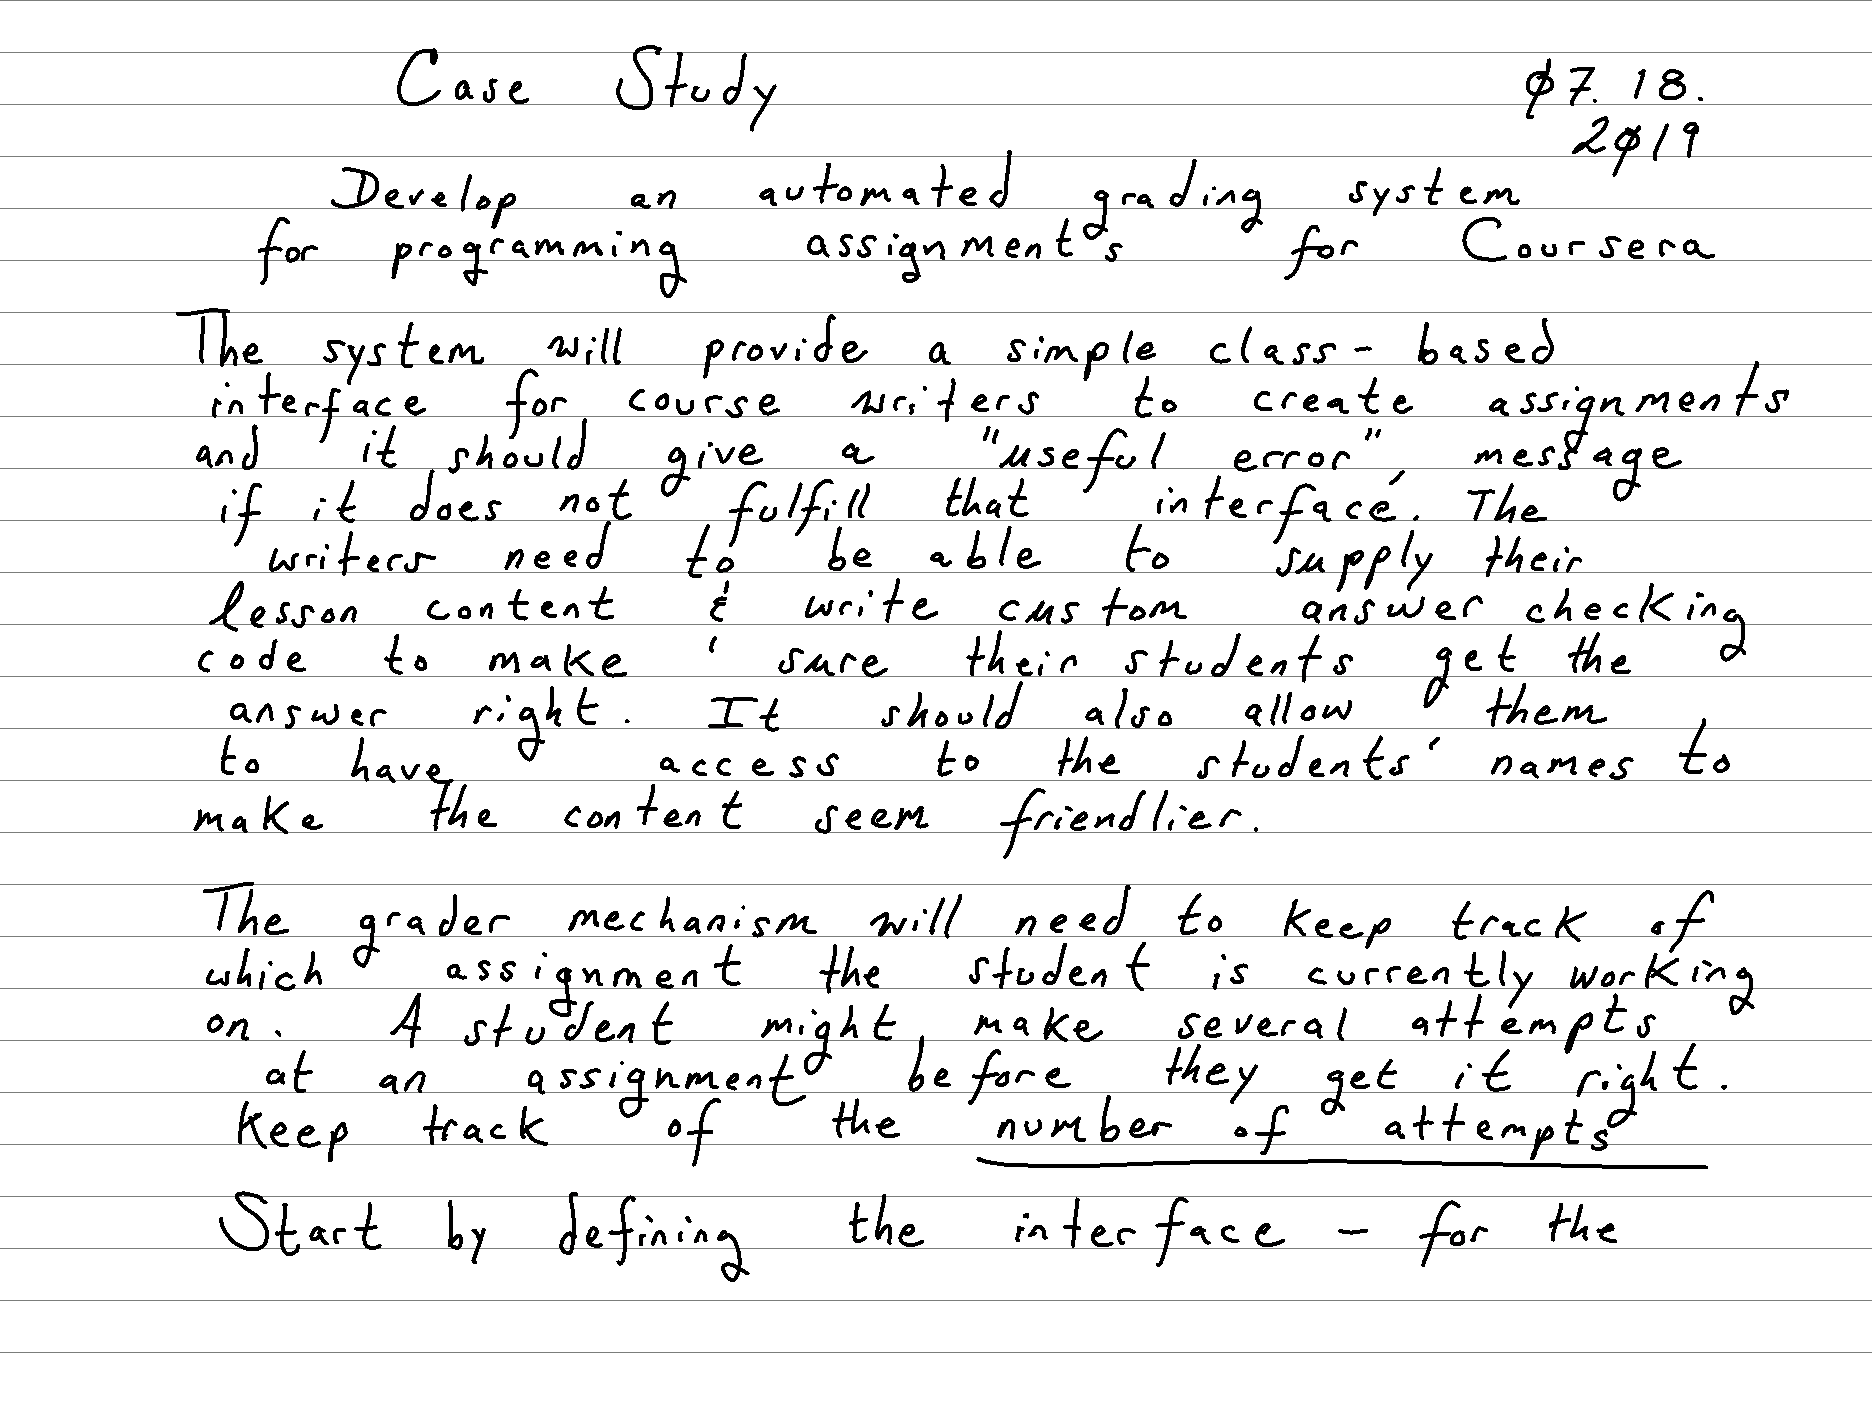 Case Study
φ7. 18.
2φ19
Develop an automated grading system
for programming assignments for Coursera
The system will provide a simple class-based
interface for course writers to create assignments
and it should give a "useful error", message
if it does not fulfill that interface. The
writers need to be able to supply their
lesson content & write custom answer checking
code to make sure their students get the
answer right. It should also allow them
to have access to the students' names to
make the content seem friendlier.
The grader mechanism will need to keep track of
which assignment the student is currently working
on. A student might make several attempts
at an assignment before they get it right.
Keep track of the number of attempts
Start by defining the interface - for the